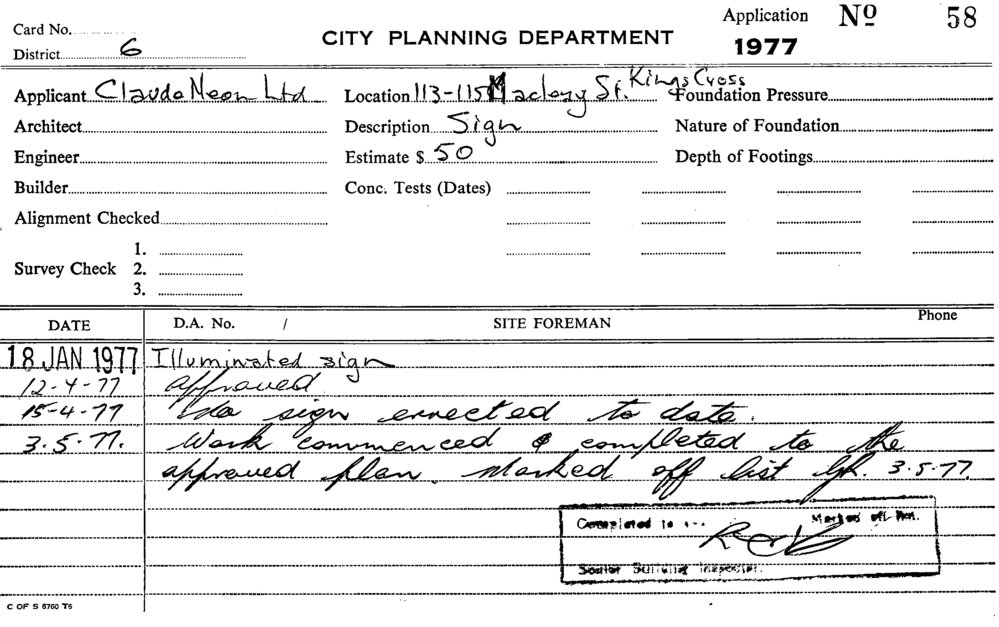 Card No.
District 6
CITY PLANNING DEPARTMENT
Application No 58
1977
Applicant Claude Neon Ltd
Location 113-115 Macleay St. Kings Cross
Foundation Pressure
Architect
Description Sign
Nature of Foundation
Engineer
Estimate $ 50
Depth of Footings
Builder
Conc. Tests (Dates)
Alignment Checked
Survey Check
1.
2.
3.
DATE D.A. No. / SITE FOREMAN Phone
18 JAN 1977 Illuminated sign
12-4-77 approved
15-4-77 No sign errected to date.
3.5.77. Work commenced & completed to the
approved plan. Marked off list 3.5.77.
Completed to Marked off
Senior Building Inspector.
C OF S 6760 T5